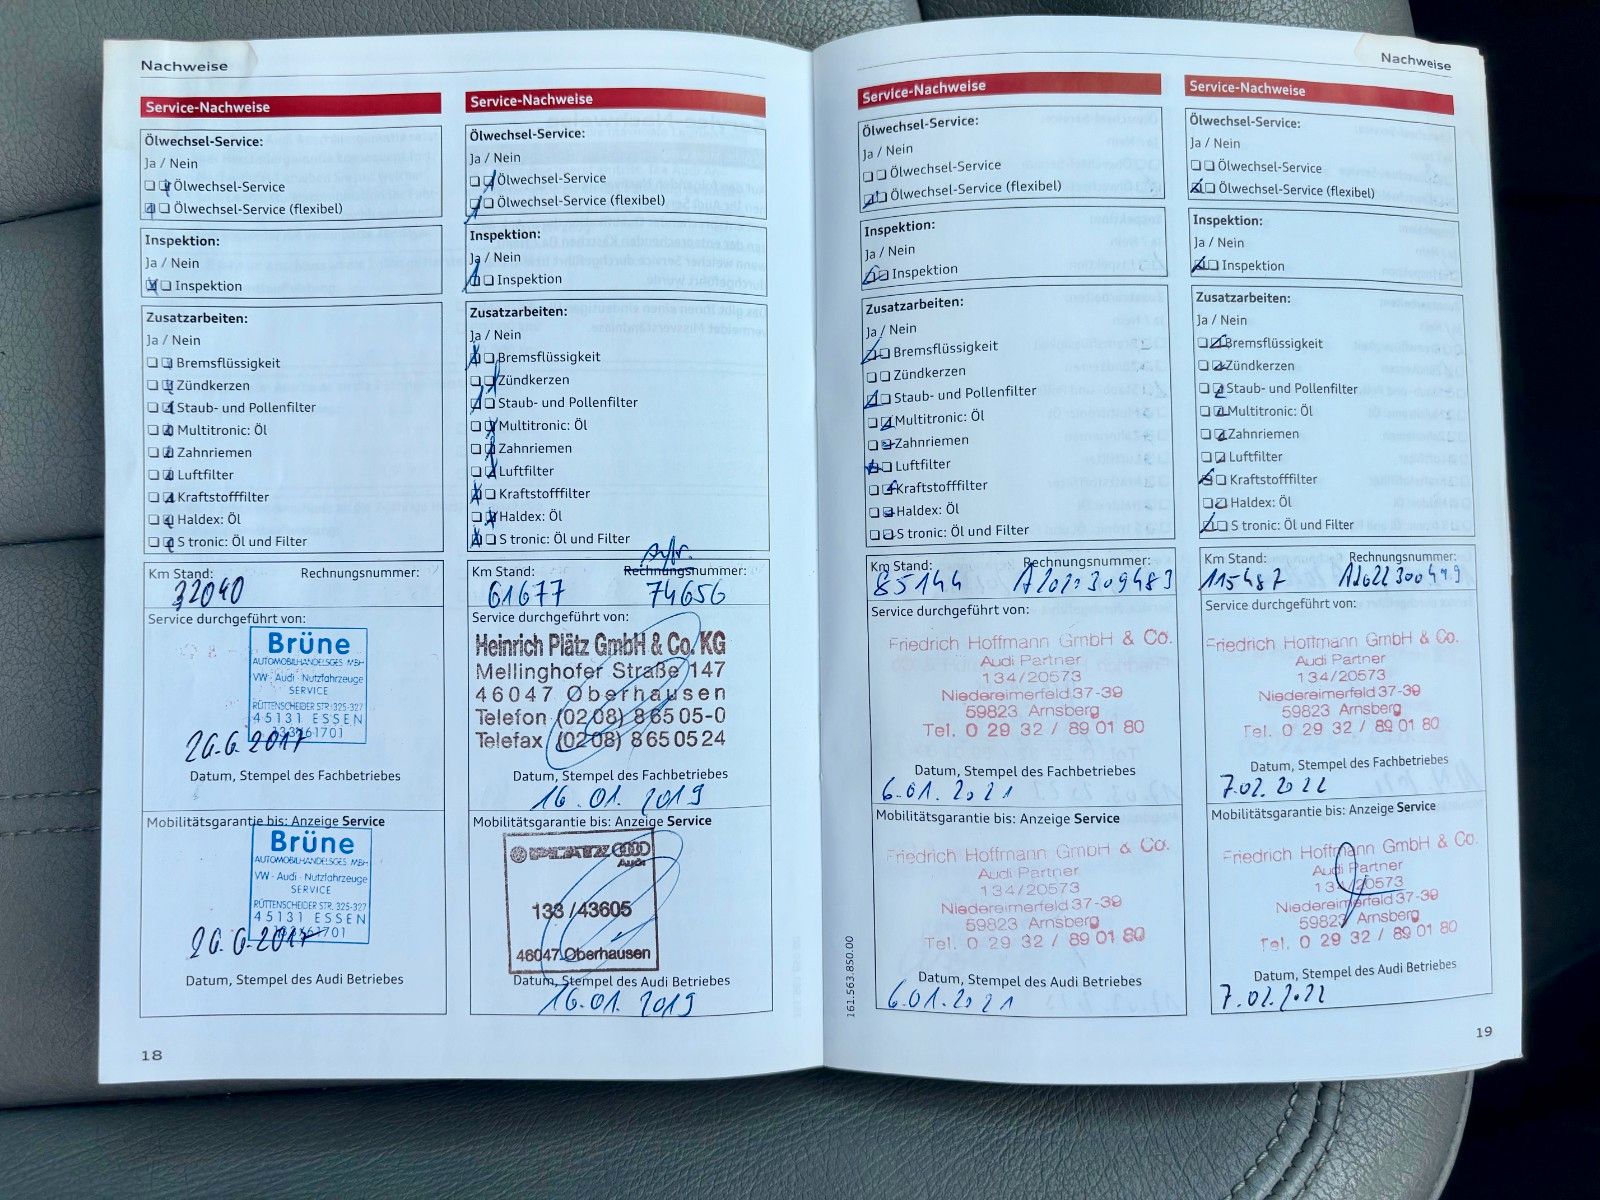 Nachweise
Service-Nachweise
Ölwechsel-Service:
Ja / Nein
Ölwechsel-Service
Ölwechsel-Service (flexibel)
Inspektion:
Ja / Nein
Inspektion
Zusatzarbeiten:
Ja / Nein
Bremsflüssigkeit
Zündkerzen
Staub- und Pollenfilter
Multitronic: Öl
Zahnriemen
Luftfilter
Kraftstofffilter
Haldex: Öl
S tronic: Öl und Filter
Km Stand: Rechnungsnummer:
32040
Service durchgeführt von:
Brüne
AUTOMOBILHANDELSGES MBH
VW · Audi · Nutzfahrzeuge
SERVICE
RÜTTENSCHEIDER STR. 325-327
45131 ESSEN
26.6.2017
Datum, Stempel des Fachbetriebes
Mobilitätsgarantie bis: Anzeige Service
Brüne
AUTOMOBILHANDELSGES MBH
VW · Audi · Nutzfahrzeuge
SERVICE
RÜTTENSCHEIDER STR. 325-327
45131 ESSEN
26.6.2017
Datum, Stempel des Audi Betriebes
18
Service-Nachweise
Ölwechsel-Service:
Ja / Nein
Ölwechsel-Service
Ölwechsel-Service (flexibel)
Inspektion:
Ja / Nein
Inspektion
Zusatzarbeiten:
Ja / Nein
Bremsflüssigkeit
Zündkerzen
Staub- und Pollenfilter
Multitronic: Öl
Zahnriemen
Luftfilter
Kraftstofffilter
Haldex: Öl
S tronic: Öl und Filter
Km Stand: Rechnungsnummer:
61677 74656
Service durchgeführt von:
Heinrich Plätz GmbH & Co. KG
Mellinghofer Straße 147
46047 Oberhausen
Telefon (0208) 86505-0
Telefax (0208) 8650524
Datum, Stempel des Fachbetriebes
16.01.2019
Mobilitätsgarantie bis: Anzeige Service
PLÄTZ
Audi
133/43605
46047 Oberhausen
Datum, Stempel des Audi Betriebes
16.01.2019
Nachweise
Service-Nachweise
Ölwechsel-Service:
Ja / Nein
Ölwechsel-Service
Ölwechsel-Service (flexibel)
Inspektion:
Ja / Nein
Inspektion
Zusatzarbeiten:
Ja / Nein
Bremsflüssigkeit
Zündkerzen
Staub- und Pollenfilter
Multitronic: Öl
Zahnriemen
Luftfilter
Kraftstofffilter
Haldex: Öl
S tronic: Öl und Filter
Km Stand: Rechnungsnummer:
85144
Service durchgeführt von:
Friedrich Hoffmann GmbH & Co.
Audi Partner
134/20573
Niedereimerfeld 37-39
59823 Arnsberg
Tel. 0 29 32 / 89 01 80
Datum, Stempel des Fachbetriebes
6.01.2021
Mobilitätsgarantie bis: Anzeige Service
Friedrich Hoffmann GmbH & Co.
Audi Partner
134/20573
Niedereimerfeld 37-39
59823 Arnsberg
Tel. 0 29 32 / 89 01 80
Datum, Stempel des Audi Betriebes
6.01.2021
161.563.850.00
Service-Nachweise
Ölwechsel-Service:
Ja / Nein
Ölwechsel-Service
Ölwechsel-Service (flexibel)
Inspektion:
Ja / Nein
Inspektion
Zusatzarbeiten:
Ja / Nein
Bremsflüssigkeit
Zündkerzen
Staub- und Pollenfilter
Multitronic: Öl
Zahnriemen
Luftfilter
Kraftstofffilter
Haldex: Öl
S tronic: Öl und Filter
Km Stand: Rechnungsnummer:
115487
Service durchgeführt von:
Friedrich Hoffmann GmbH & Co.
Audi Partner
134/20573
Niedereimerfeld 37-39
59823 Arnsberg
Tel. 0 29 32 / 89 01 80
Datum, Stempel des Fachbetriebes
7.02.2022
Mobilitätsgarantie bis: Anzeige Service
Friedrich Hoffmann GmbH & Co.
Audi Partner
134/20573
Niedereimerfeld 37-39
59823 Arnsberg
Tel. 0 29 32 / 89 01 80
Datum, Stempel des Audi Betriebes
7.02.2022
19